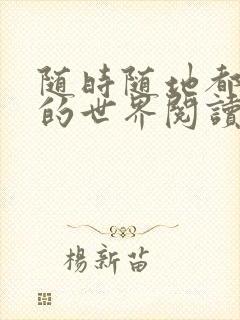 随時随地都
的世界閱讀
楊新苗